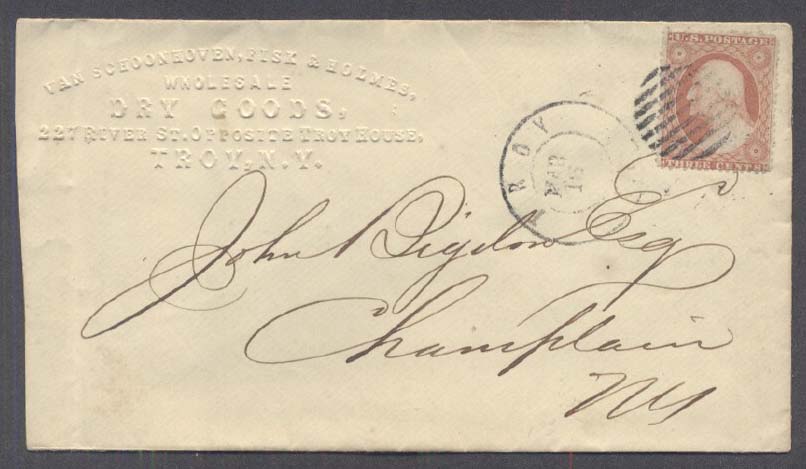 VAN SCHOONHOVEN, FISK & HOLMES,
WHOLESALE
DRY GOODS,
227 RIVER ST. OPPOSITE TROY HOUSE,
TROY, N.Y.
TROY
MAR
U.S. POSTAGE
THREE CENTS
John Bigelow Esq
Champlain
NY